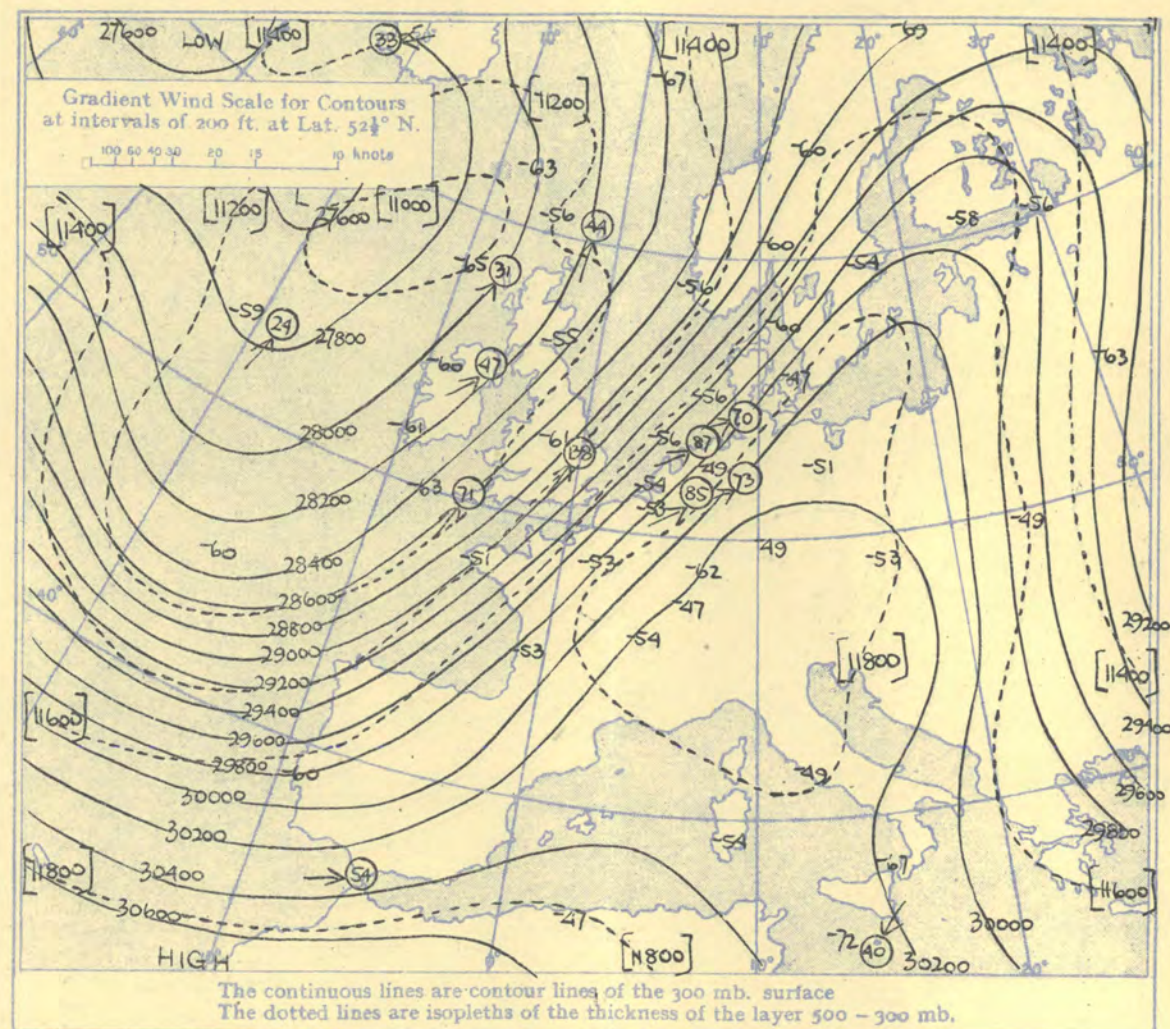 27600 LOW [11400] 33 -56 10° [11400] 10° 20° -69 30° [11400]
Gradient Wind Scale for Contours
at intervals of 200 ft. at Lat. 52½° N.
100 60 40 30 20 15 10 knots
[11200] -67
-63 -60 60°
[11400] [11200] L 27600 [11000] -56 44 -60 -58 -56
-65 31 -56 -54
-59 24 27800 -55 -60 -63
-60 47 -47
28000 -61 -56 70
-61 138 -56 87 -49 -51
28200 -63 71 -54 85 73
-53 -49
-60 -51 -49 -53
28400 -53 -62
40° 28600 -47
28800 -54 29200
29000 -53 [11800]
29200 [11400]
[11600] 29400 29400
29600
29800 -60 -49 29600
30000 29800
30200 -54
[11800] 30400 54 -67 [11600]
30600 -47 30000
HIGH 0° [11800] 10° -72 40 30200 20°
The continuous lines are contour lines of the 300 mb. surface
The dotted lines are isopleths of the thickness of the layer 500 – 300 mb.